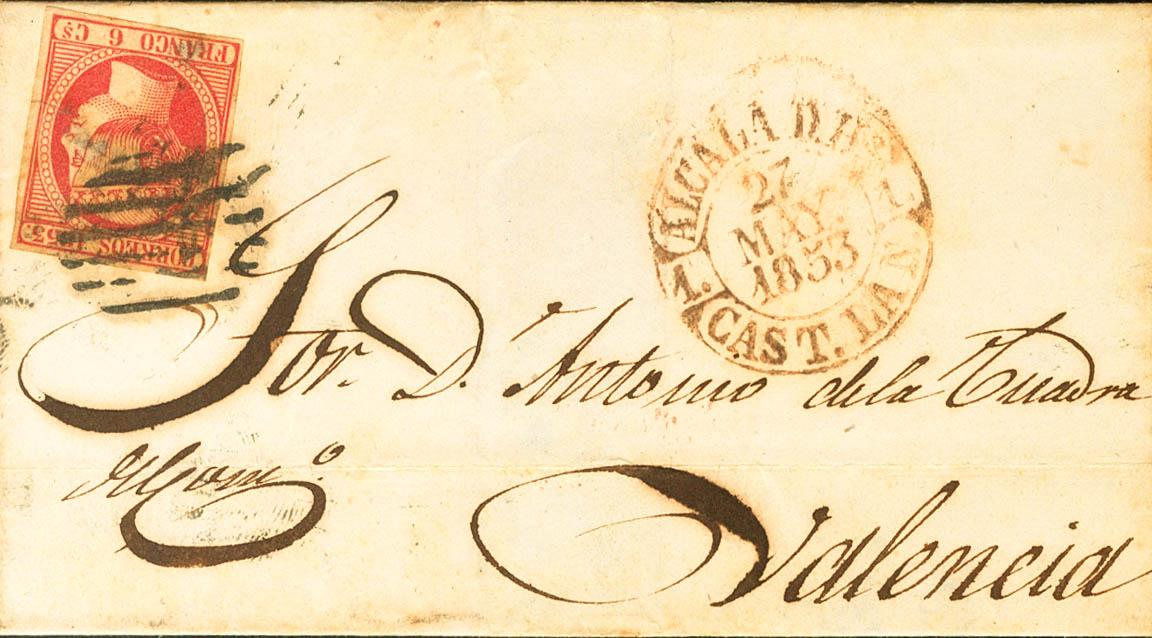 FRANCO 6 Cs
CORREOS 1853
ALCALA D. HS
27
MAY.
1853
1.
CAST. LA N
Sor. D. Antonio de la Cuadra
del Comº.
Valencia